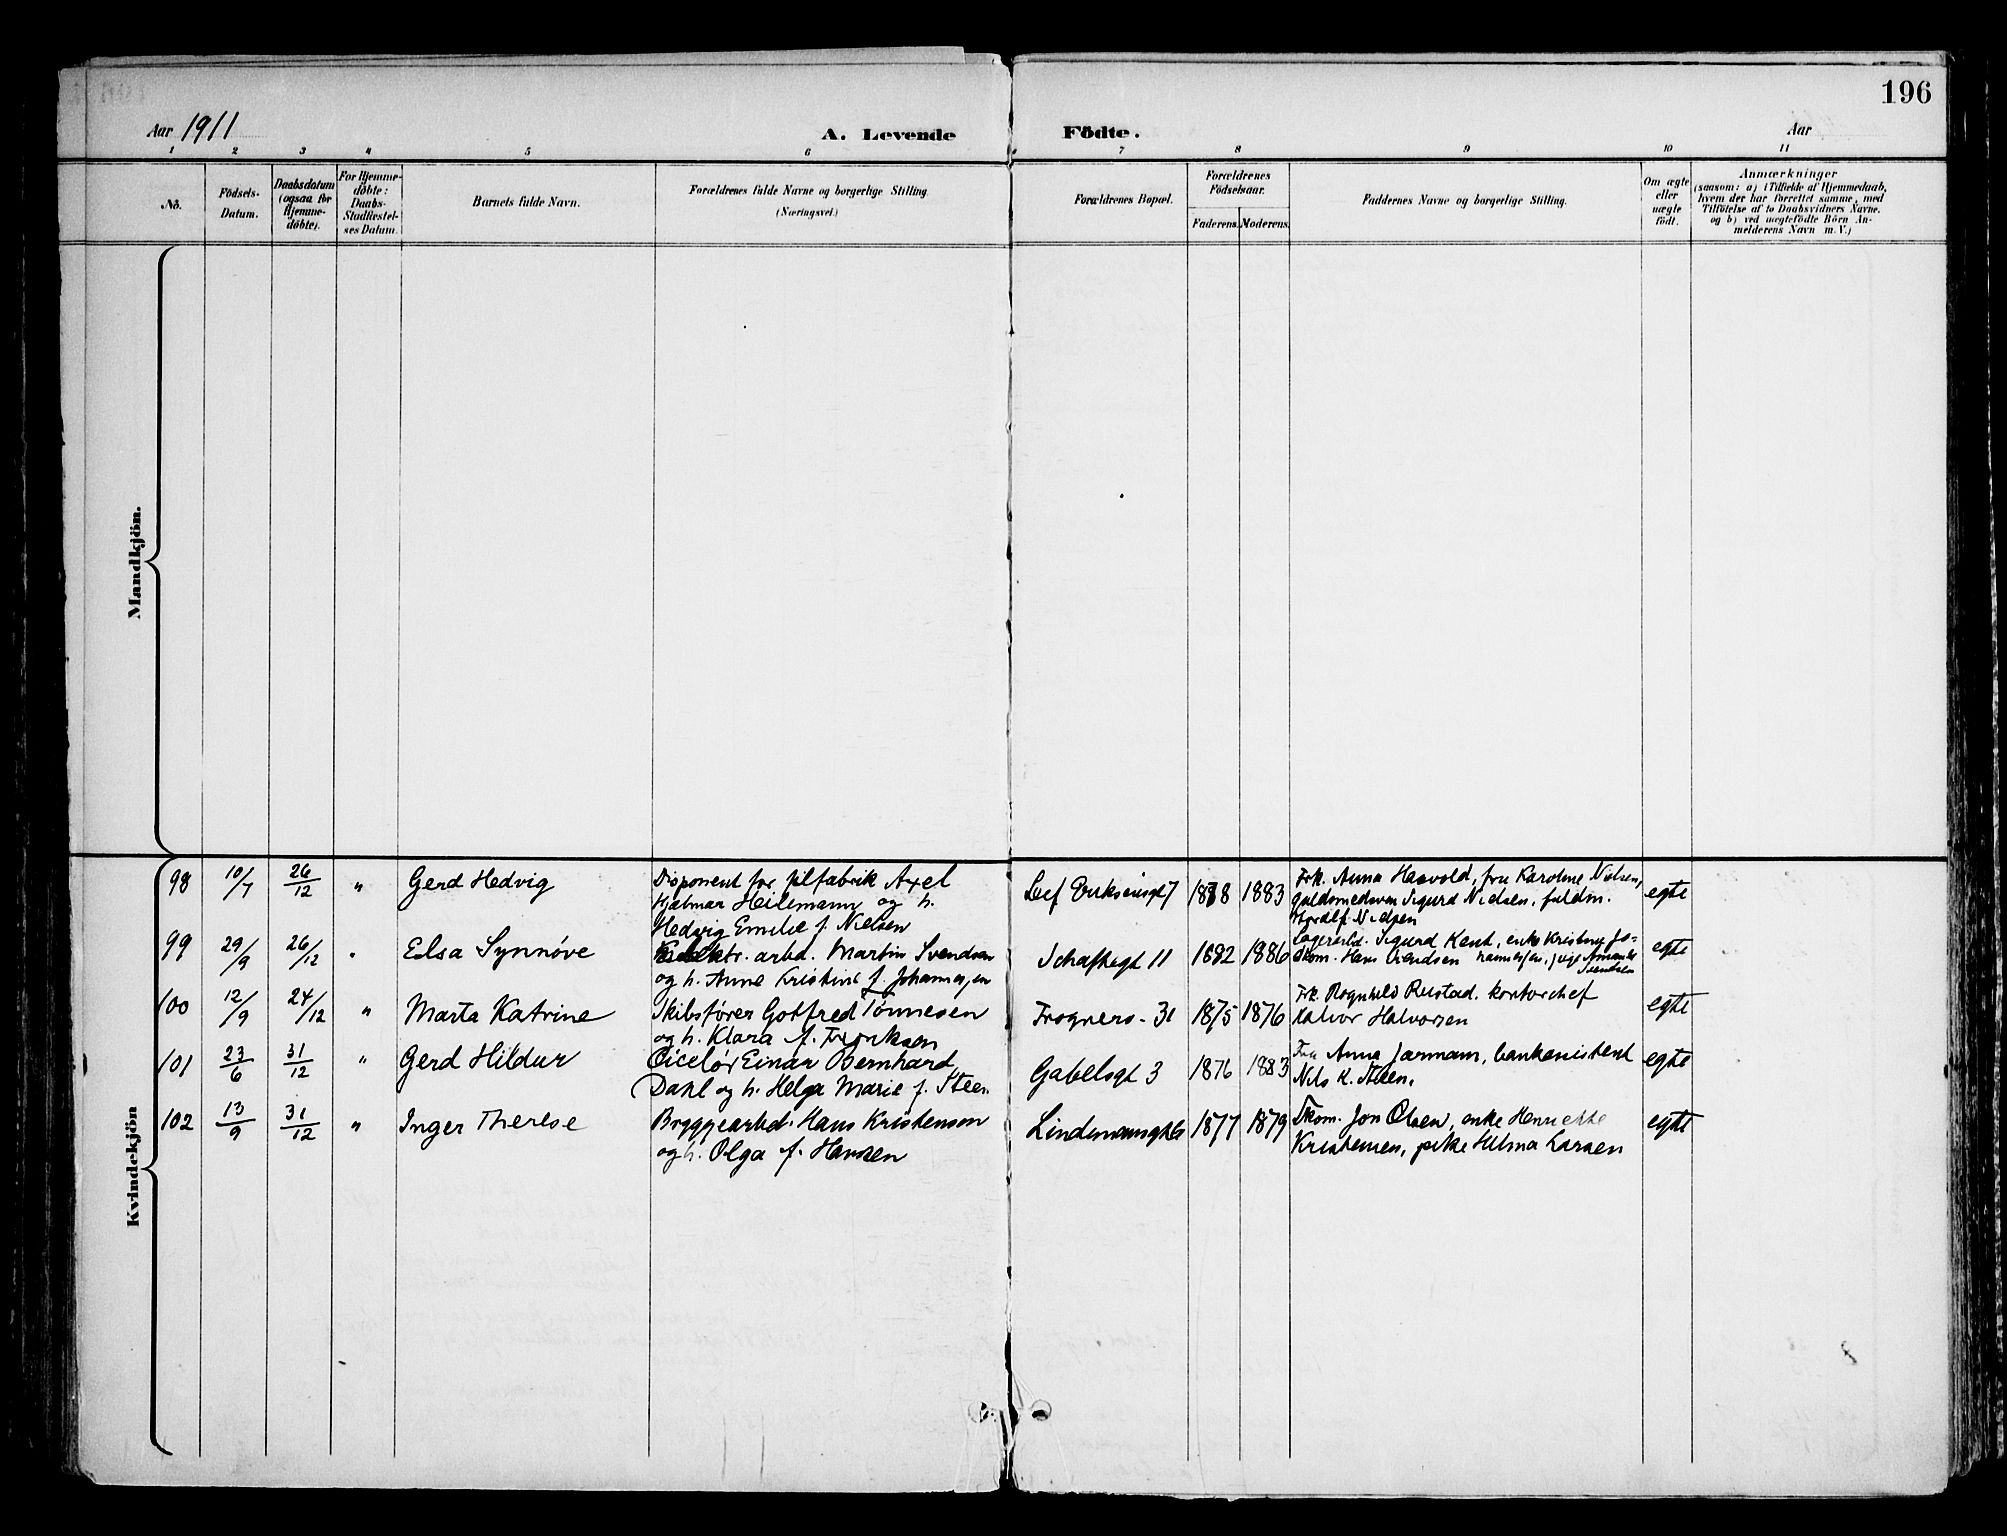 196
Aar 1911 A. Levende Födte. Aar
1 2 3 4 5 6 7 8 9 10 11
No.
Födsels-
Datum.
Daabsdatum
(ogsaa for
Hjemme-
döbte).
For Hjemme-
döbte:
Daabs-
Stadfæstel-
ses Datum.
Barnets fulde Navn.
Forældrenes fulde Navne og borgerlige Stilling.
(Næringsvei.)
Forældrenes Bopæl.
Forældrenes
Födselsaar.
Faderens. Moderens.
Faddernes Navne og borgerlige Stilling.
Om ægte
eller
uægte
födt.
Anmærkninger
(saasom: a) i Tilfælde af Hjemmedaab,
hvem der har forrettet samme, med
Tilföielse af to Daabsvidners Navne.
og b) ved uægtefödte Börn An-
melderens Navn m. V.)
Mandkjön.
Kvindekjön
98 10/7 26/12 " Gerd Hedvig
Disponent for filfabrik Axel
Hjalmar Heilemann og h.
Hedvig Emilie f. Nielsen
7 1883
Frk. Anna , fru Karoline Nielsen,
guldsmedsven Sigurd Nielsen, fuldm.
Nielsen
egte
99 29/9 26/12 " Elsa Synnøve
arbd. Martin Svendsen
og h. Anne Kristine f. Johannesen
Schaftegt 11 1882 1886
Lagerarbd. Sigurd Kent, enke Jo-
Skom. Hans Svendsen hannesen, pige
Svendsen
egte
100 12/9 24/12 " Marta Katrine
Skibsfører Gotfred Tønnesen
og h. Klara f.
Frogners- 31 1875 1876
Frk. Ragnhild Rustad. kontorchef
Halvor Halvorsen
egte
101 23/6 31/12 " Gerd Hildur
Ciselør Einar Bernhard
Dahl og h. Helga Marie f. Steen
Gabelsgt 3 1876 1883
Fru Anna Jarmann, bankassistent
Nils K. Steen,
egte
102 13/9 31/12 " Inger Therese
Bryggearbd. Hans Kristensen
og h. Olga f. Hansen
1877 1879
Skom. Jon Olsen, enke Henriette
Kristensen, pike Hilma Larsen
egte